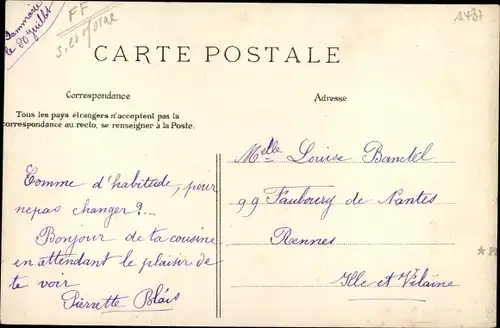 Dammarie
le 20 juillet
FF
S. et Marne
1437
CARTE POSTALE
Correspondance
Adresse
Tous les pays étrangers n'acceptent pas la
correspondance au recto, se renseigner à la Poste.
Comme d'habitude, pour
ne pas changer?...
Bonjour de ta cousine
en attendant le plaisir de
te voir
Pierrette Blais
Melle Louise Banctel
99 Faubourg de Nantes
Rennes
Ille et Vilaine